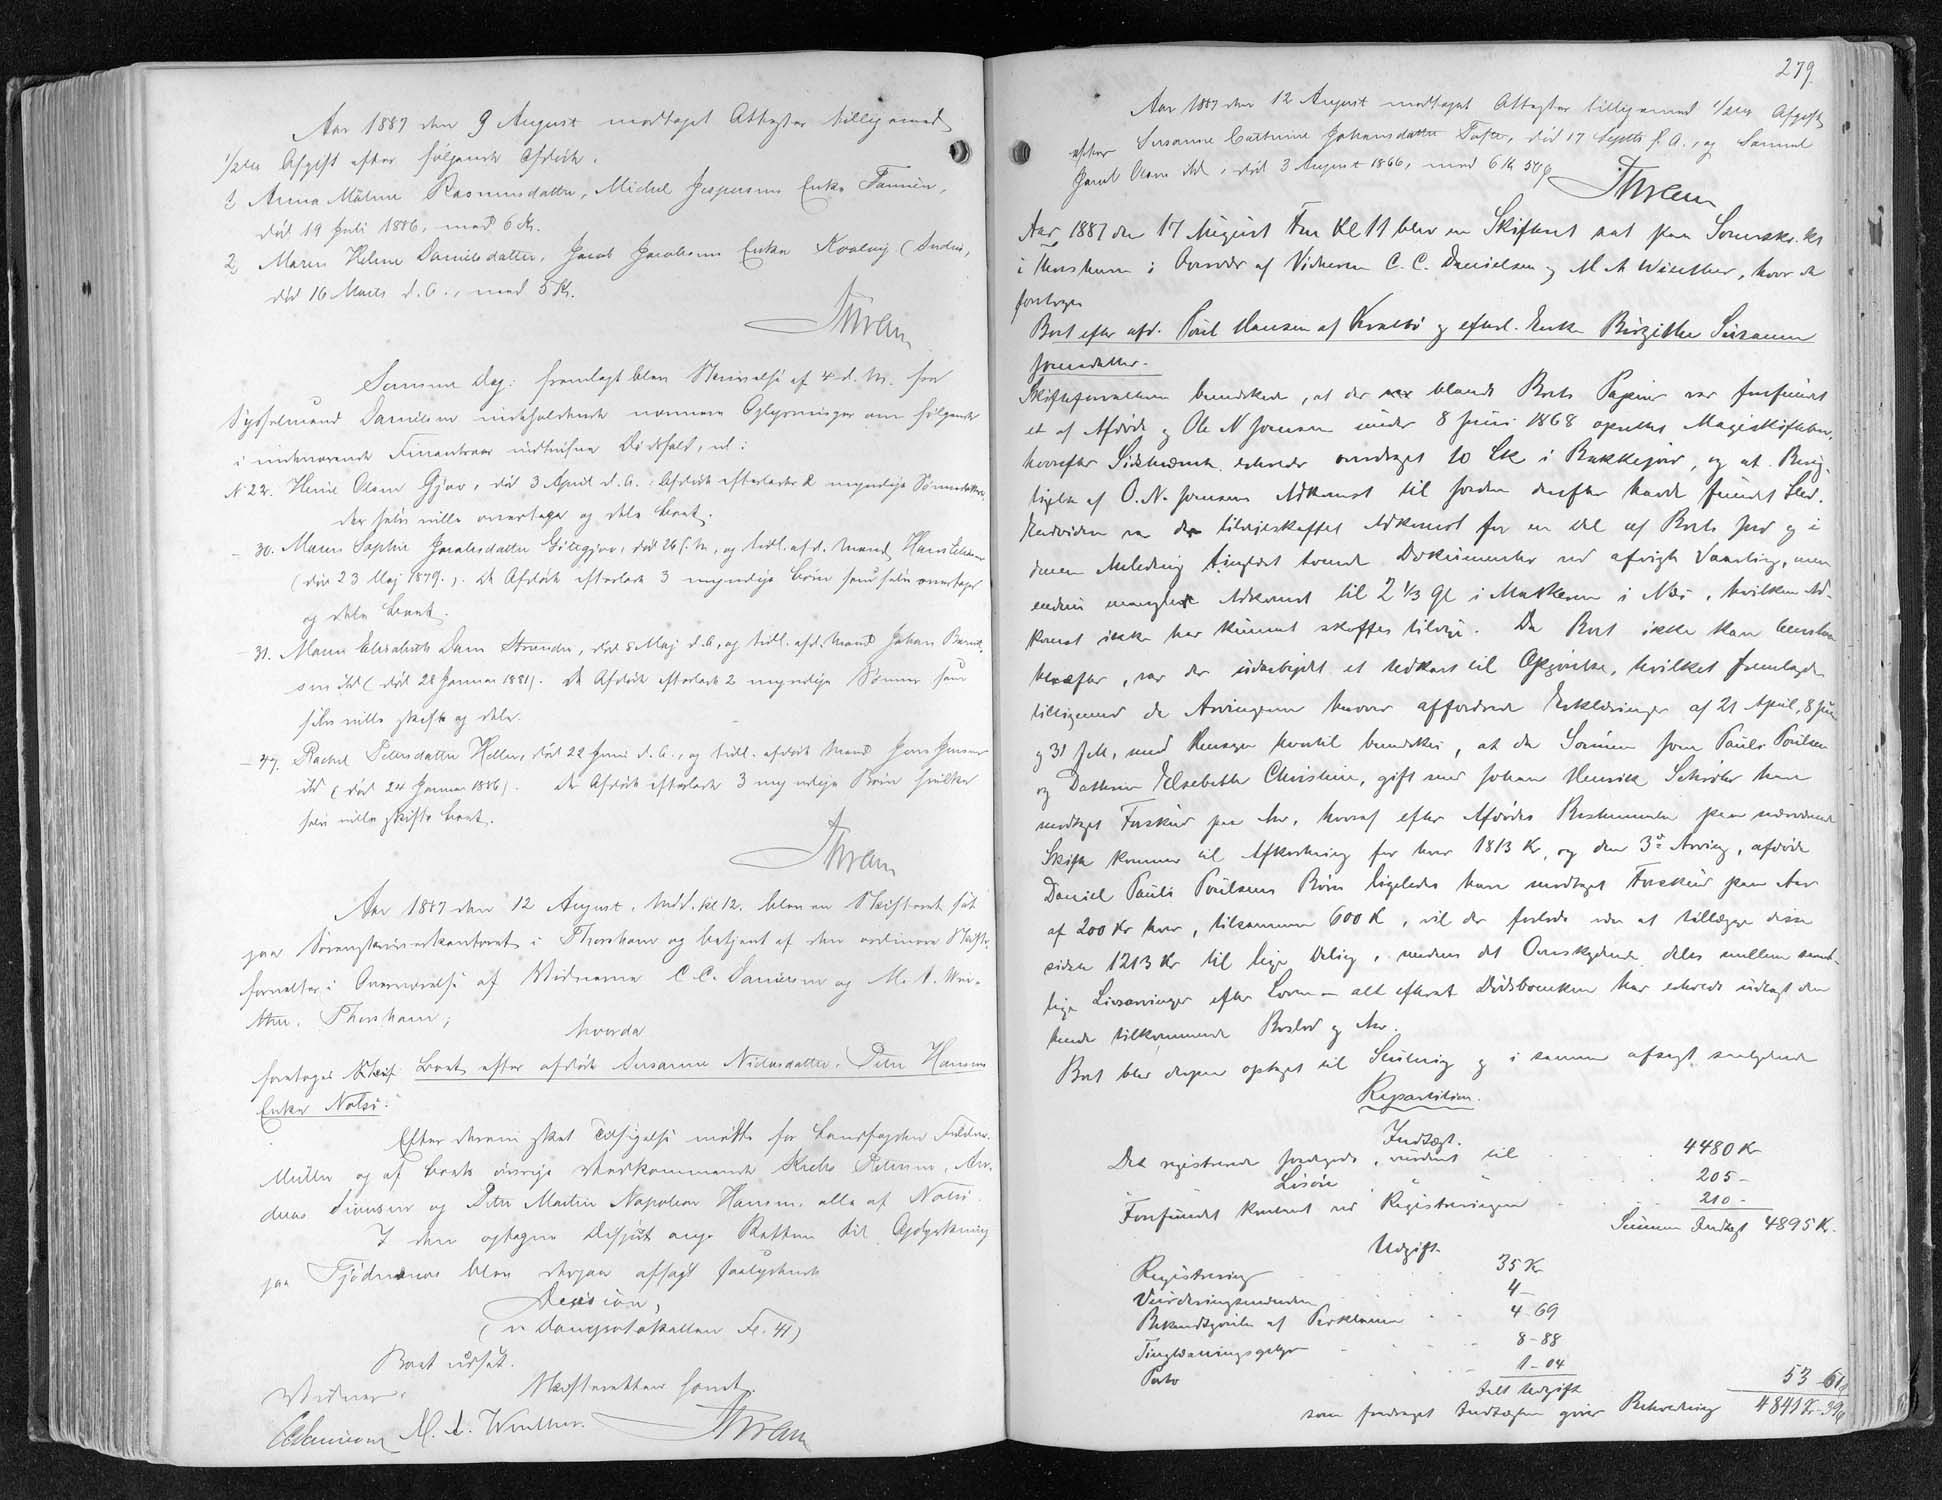 Aar 1887 den 9 August modtaget Attester tilligemed
1/2 % Afgift efter følgende Afdøde.
1 Anna Malene Rasmusdatter, Michel Jespersens Enke Famien,
død 19 Juli 1886, med 6 Kr.
2, Maren Helene Danielsdatter, Jacob Jacobsens Enke Kvalvig (
død 16 Marts d. A., med 5 Kr.
Samme Dag: fremlagt blev Skrivelse af 4 d. M. fra
Sysselmand Danielsen indeholdende nærmere Oplysninger om følgende
i indeværende Finantsaar indtrufne Dødsfald, nl:
N 22. Olsen Gjov, død 3 April d. A. Afdøde efterlader 2 myndige
der selv ville overtage og dele Boet.
- 30. Maren Sophie Jacobsdatter, død 26 f. M., og tidl. afd. Mand, Hans
(død 23 Maj 1879.). De Afdøde efterlade 3 myndige Børn som selv overtager
og dele Boet.
- 31. Maren Elisabeth Dam Strender, død 5 Maj d. A., og tidl. afd. Mand Johan
(død 28 Januar 1881). De Afdøde efterlade 2 myndige Sønner som
selv ville skifte og dele.
- 47. Rachel Petersdatter Heller, død 22 Juni d. A., og tidl. afdøde Mand Jens Jensen
ibd (død 24 Januar 1886). De Afdøde efterlade 3 myndige Børn hvilke
selv ville skifte Boet.
Aar 1887 den 12 August, Midd. Kl 12. blev en Skifteret sat
paa Sorenskriverkontoret i Thorshavn og betjent af den ordinære Skifte-
forvalter i Overværelse af Vidnerne C. C. Danielsen og M. A. Win-
ther, Thorshavn;
hvorda
foretoges Boet efter afdøde Susanne Niclasdatter, Peter Hansens
Enke Nolsø.
Efter derom sket Tilsigelse mødte for Landfogden
Müller og af Boets øvrige Vedkommende Petersen, An-
dreas Simonsen og Peter Martin Napoleon Hansen, alle af Nolsø.
I den optagne Disput ang. Retten til Opdyrkning
paa blev derpaa afsagt saalydende
Decision,
(v. Domsprotokollen Fol. 41)
Boet udsat.
Vidner: Skifteretten hævet.
CCDanielsen M. A. Winther.
279.
Aar 1887 den 12 August modtaget Attester tilligemed 1/2 % Afgift
efter Susanne Cathrine Johansdatter Tofte, død 17 Septb. f. A., og Samuel
Jacob Olsen ibd., død 3 August 1866, med 6 Kr 50
Aar 1887 den 17 August Fm Kl 11 blev en Skifteret sat paa Sorenskr. kt
i Thorshavn i Overvær af Vidnerne C. C. Danielsen og M A Winther, hvor da
foretoges
Boet efter afd. Poul Hansen af Kvalbø og efterl. Enke Birgitthe Susanne
Joensdatter.
Skifteforvalteren bemærkede, at der blandt Boets Papirer var forefundet
et af Afdøde og Ole N Joensen under 8 Juni 1868 oprettet Mageskiftebrev,
hvorefter Sidstnævnte allerede overdraget 10 Sk i Bakkejord, og at Berig-
tigelse af O. N. Joensens Adkomst til Jorden derefter havde fundet Sted.
Endvidere var der tilvejeskaffet Adkomst for en Del af Boets Jord og i
denne Anledning tinglæst tvende Dokumenter ved afvigte Vaarting, men
endnu manglede Adkomst til 2 1/3 Gl i Markerne i Næs, hvilken Ad-
komst ikke har kunnet skaffes tilveje. Da Boet ikke kan
herefter, var der udarbejdet et Udkast til Opgjørelse, hvilket fremlagdes
tilligemed de Arvingerne herover affordrede Erklæringer af 21 April, 8 Juni
og 31 Juli, med Hensyn hvortil bemærkes, at da Sønnen Joen Pauli Poulsen
og Datteren Elsebeth Christine, gift med Johan Henrik Schrøter have
modtaget Forskud paa Arv, hvoraf efter Afdødes Bestemmelse paa nærværende
Skifte kommer til Afkortning for hver 1813 Kr, og den 3die Arving, afdøde
Daniel Pauli Poulsens Børn ligeledes have modtaget Forskud paa Arv
af 200 Kr hver, tilsammen 600 K, vil der forlods være at tillægge disse
sidste 1213 Kr til lige Deling, medens det Overskydende deles mellem samt-
lige Livsarvinger efter Loven - alt efterat Dødsboenken har erholdt udlagt den
hende tilkommende Boslod og Arv.
Boet blev derpaa optaget til Slutning og i samme afsagt saalydende
Repartition.
Indtægt.
Det registrerede Jordegods, vurderet til 4480 Kr
" Løsøre " " 205 -
Forefundet Kontant ved Registreringen 210 -
Summa Indtægt 4895 K.
Udgift
Registrering 35 Kr
Vurderingsmændene 4 -
Bekendtgørelse af Proklama 4 - 69
Tinglæsningsgebyr 8 - 88
Porto 1 - 04
Ialt Udgift 53 - 61
som fradraget Indtægten giver Beholdning 4841 Kr 39